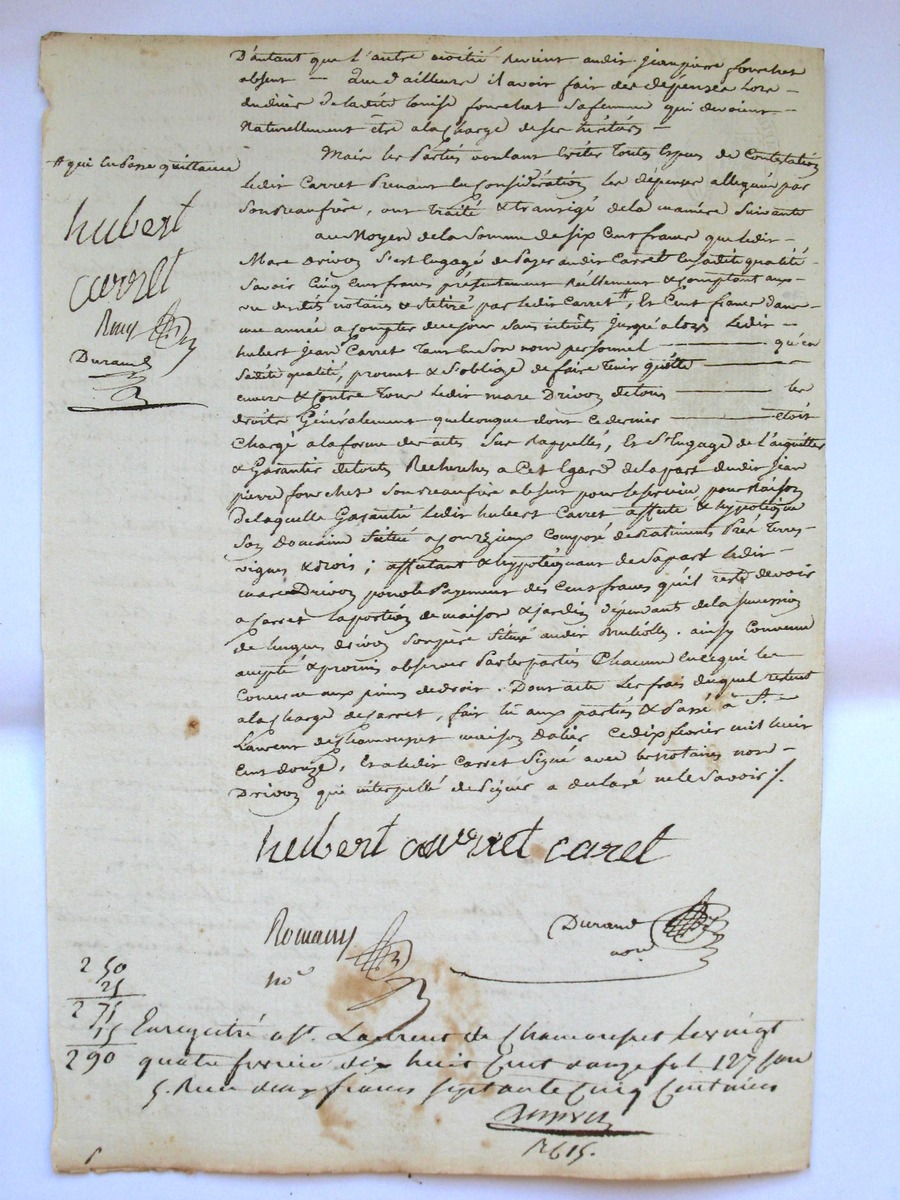 D'autant que l'autre moitié revient audit jeanpierre fourchet
absent — que d'ailleurs il avoit fait des dépenses lors
du décès de la dite louise fourchet sa femme qui devoient
naturellement être a la Charge de ses héritiers —
Mais les Parties voulant Eviter Toutes Espèces de Contestation
ledit Carret Prenant En Considération les dépenses alleguées par
son beaufrère, ont traité & transigé de la manière suivante
au Moyen de la Somme de Six Cent francs que ledit
Marc Drivon s'est Engagé de Payer audit Carret En sadite qualité
Savoir Cinq Cent francs présentement Réellement & Comptant aux
vu desdits notaires & Retiré par ledit Carret #, Et Cent francs dans
une année a compter de ce jour sans intérêts jusqu'alors ledit
hubert jean Carret Tant En Son nom personnel — qu'en
Sadite qualité, promet & s'oblige de faire Tenir quitte —
envers & Contre Tous ledit marc Drivon de tous — les
droits Généralement quelconque dont ce dernier — étoit
Chargé a la forme des actes Sus Rappellés, Et S'Engage de l'aquitter
& Garantir de toutes Recherches a Cet Egard de la part dudit Jean
pierre fourchet Son beaufrère absent pour le service pour Raison
de laquelle Garantie ledit hubert Carret affecte & hypotèque
Son Domaine Situé a composé de Batiments Prés Terres
vignes & bois ; affectant & hypotéquant de Sa part ledit
marc Drivon pour le Payement des Cent francs qu'il reste devoir
a Carret la portion de maison & jardin dépendants de la succession
de hugues drivon son père Situé audit . ainsy Convenu
accepté & promis observer Par les parties Chacune En ce qui les
Concerne aux peines de droit . Dont acte les frais duquel restent
a la Charge de Carret, fait lu aux parties & Passé à St.
Laurent de Chamousset maison ce dix février mil huit
Cent douze, Et a ledit Carret Signé avec les notaires non
Drivon qui interpellé de Signer a declaré ne le Savoir ./.
# qui En Passe quittance
hubert
carret
Romy
Durand
hubert carret caret
Romany
no.re
Durand
no.re
2 50
25
2 75
15
2 90
Enregistré a St. Laurent de Chamousset le vingt
quatre fevrier dix huit Cent douze fol 127
5. Recu deux francs septante Cinq Centimes